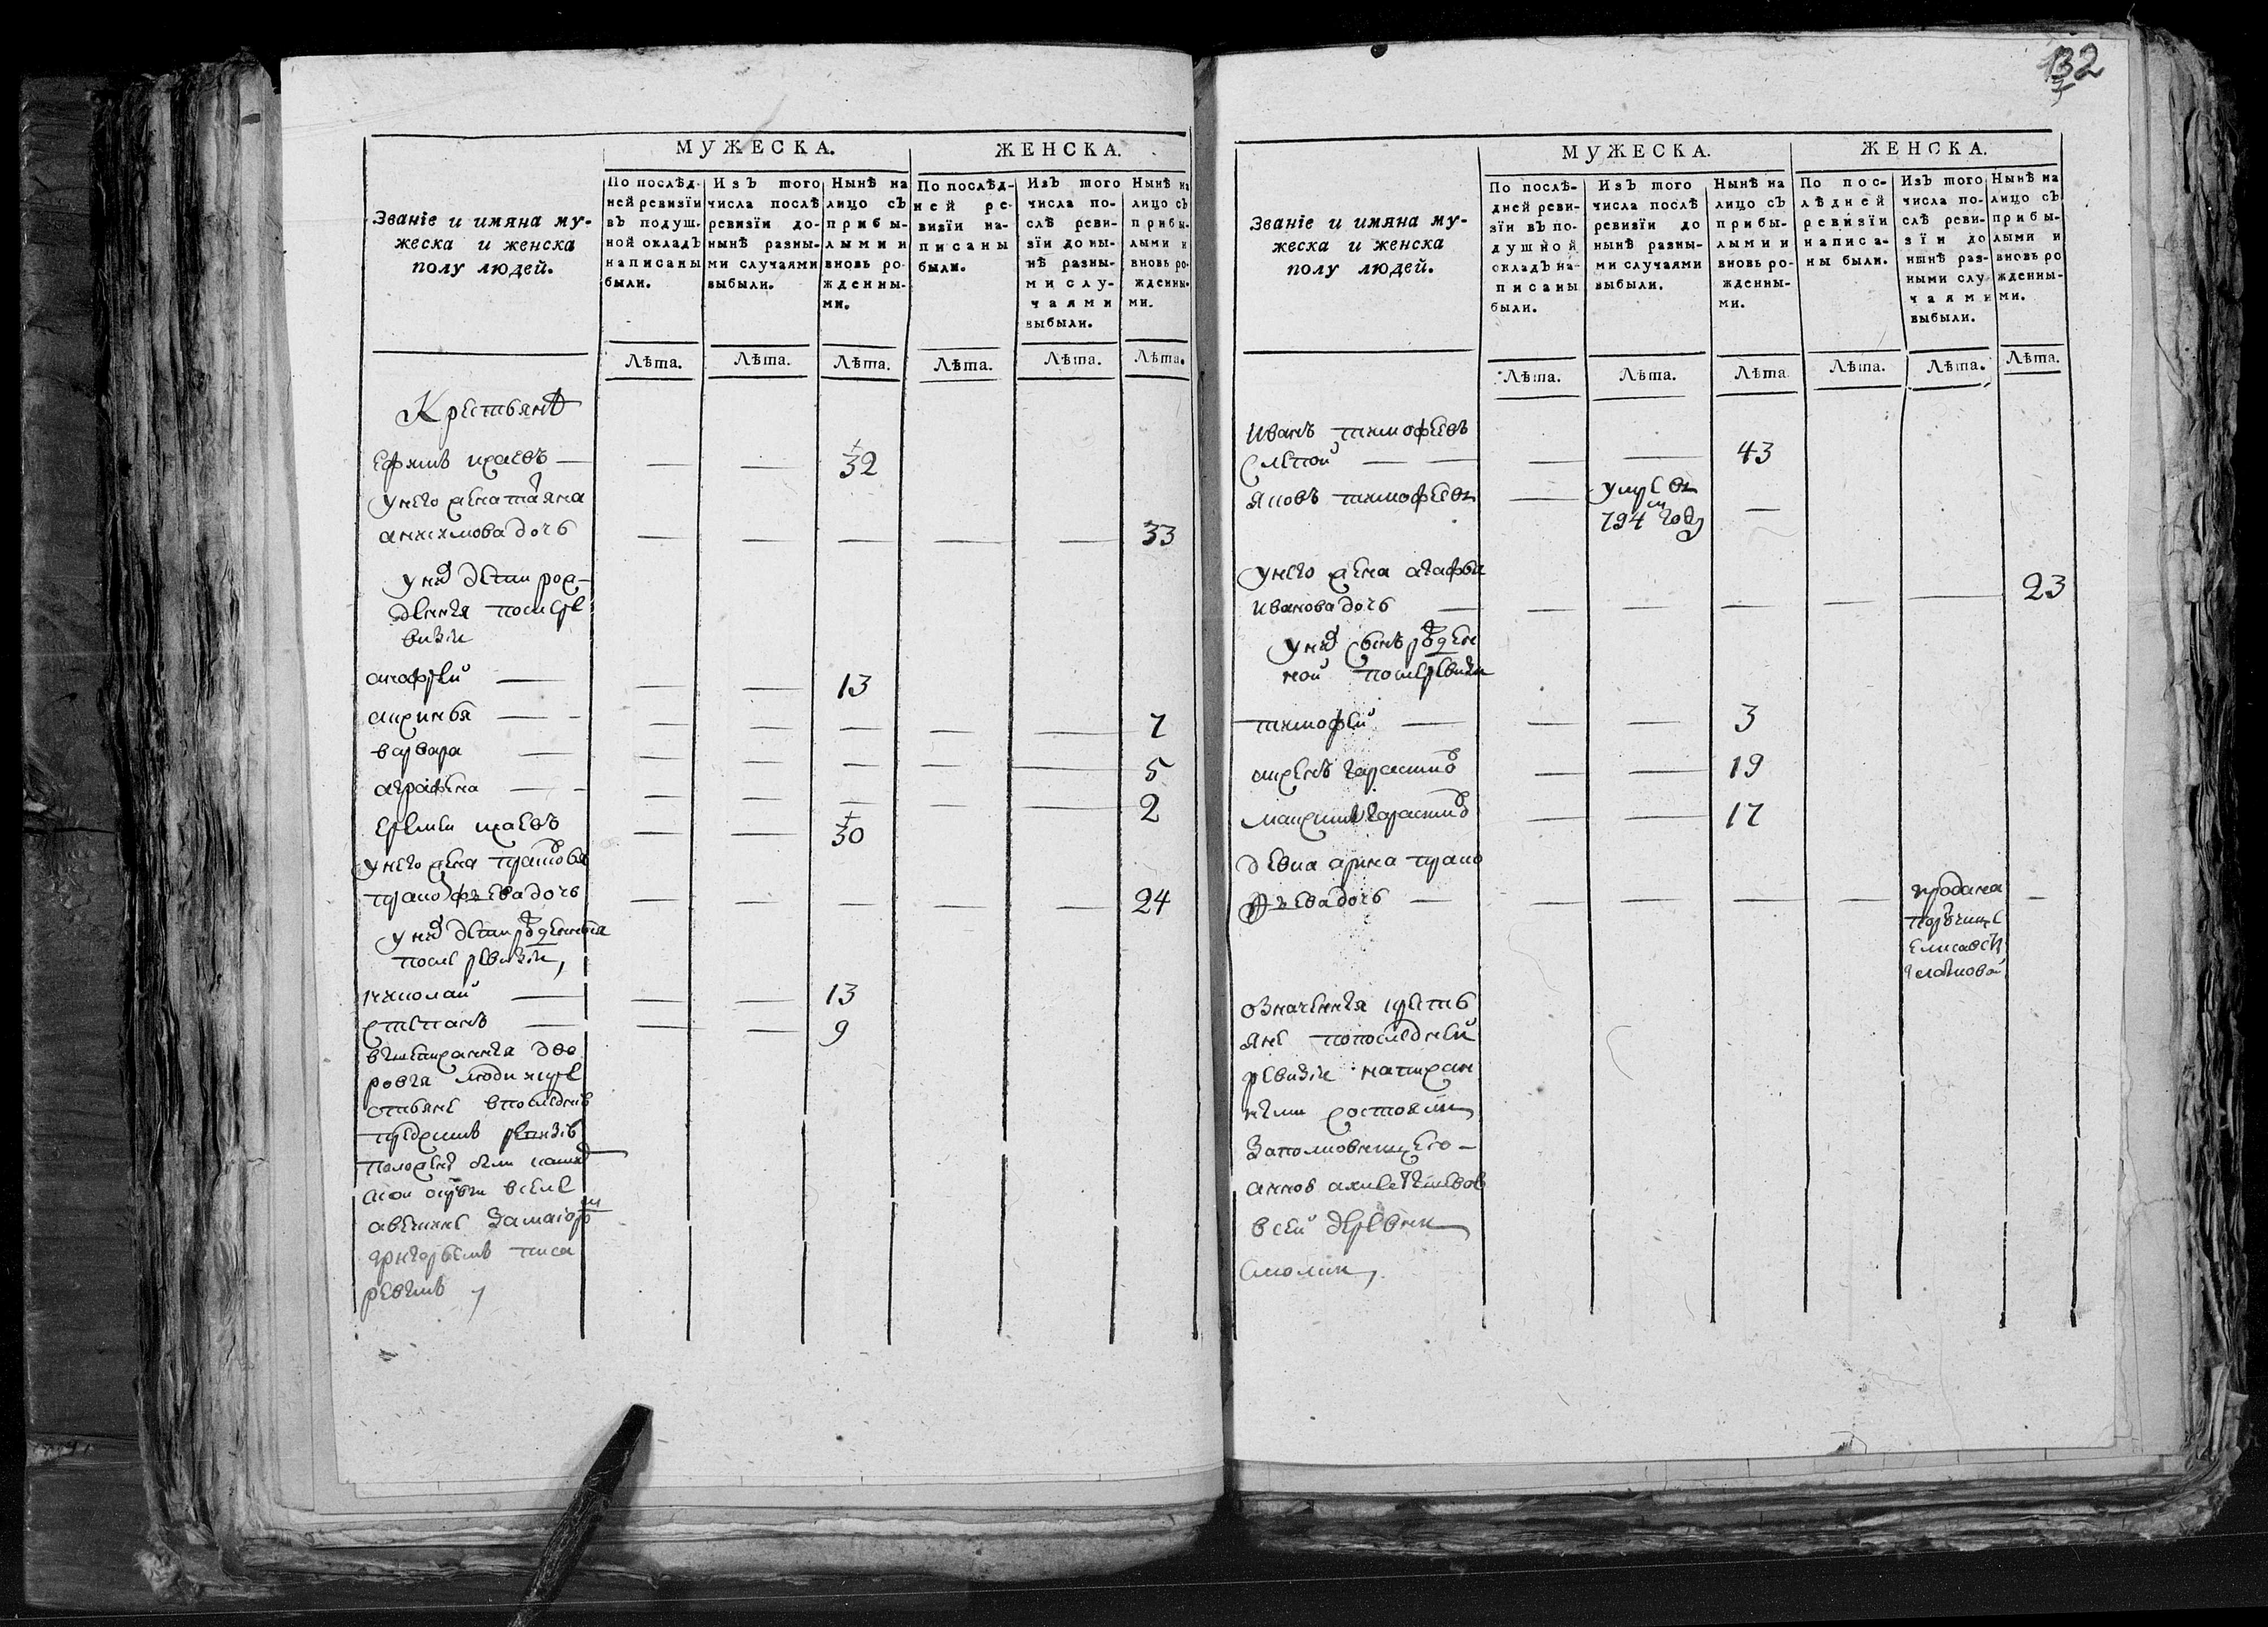 МУЖЕСКА. ЖЕНСКА.
Званїе и имяна му-
жеска и женска
полу людей.
По послѣд-
ней ревизїи
въ подуш-
ной окладъ
написаны
были.
Изъ того
числа послѣ
ревизїи до-
нынѣ разны-
ми случаями
выбыли.
Нынѣ на
лицо съ
прибы-
лыми и
вновь ро-
жденны-
ми.
По послѣд-
ней ре-
визїи на-
писаны
были.
Изъ того
числа по-
слѣ реви-
зїи до ны-
нѣ разны-
ми слу-
чаями
выбыли.
Нынѣ на
лицо съ
прибы-
лыми и
вновь ро-
жденны-
ми.
Лѣта. Лѣта. Лѣта. Лѣта. Лѣта. Лѣта.
Крестьянъ
Ефимъ исаевъ — — — 32
у него жена татьяна
анисимова дочь — — — — — 33
у них дети рож-
дения после ре
визии
анофрей — — — 13
аксинья — — — — — — 7
варвара — — — — — — 5
аграфена — — — — — — 2
еремеи исаевъ — — 30
у него жена прасковья
прокофьева дочь — — — — — 24
у них дети рожденныя
после ревизии,
николай — — — 13
степанъ — — — 9
вышеписанныя дво
ровыя люди и кре
стьяне в последнею
пред сим ревизию
положены были
в селе
за маіором
григорьемъ писа
ревымъ
132
МУЖЕСКА. ЖЕНСКА.
Званїе и имяна му-
жеска и женска
полу людей.
По послѣ-
дней реви-
зїи въ по-
душной
окладъ на-
писаны
были.
Изъ того
числа послѣ
ревизїи до
нынѣ разны-
ми случаями
выбыли.
Нынѣ на
лицо съ
прибы-
лыми и
вновь ро-
жденны-
ми.
По пос-
лѣдней
ревизїи
написа-
ны были.
Изъ того
числа по-
слѣ реви-
зїи до
нынѣ раз-
ными слу
чаями
выбыли.
Нынѣ на
лицо съ
прибы-
лыми и
вновь ро
жденны-
ми.
Лѣта. Лѣта. Лѣта. Лѣта. Лѣта. Лѣта.
Иванъ тимофеевъ
слепой — — — — 43
яковъ тимофеевъ — умре въ
794м году —
у него жена агафья
иванова дочь — — — — — — 23
у них сынъ рожден
ной после ревизии
тимофей — — — 3
аксенъ тарасовъ — — 19
максимъ тарасовъ — — 17
девка арина проко
фьева дочь — — — — — продана —
порутчице
елисавете
означенныя кресть
яне по последней
ревизии написан
ными состояли
за полковницею —
анной
в сей деревни
смолин